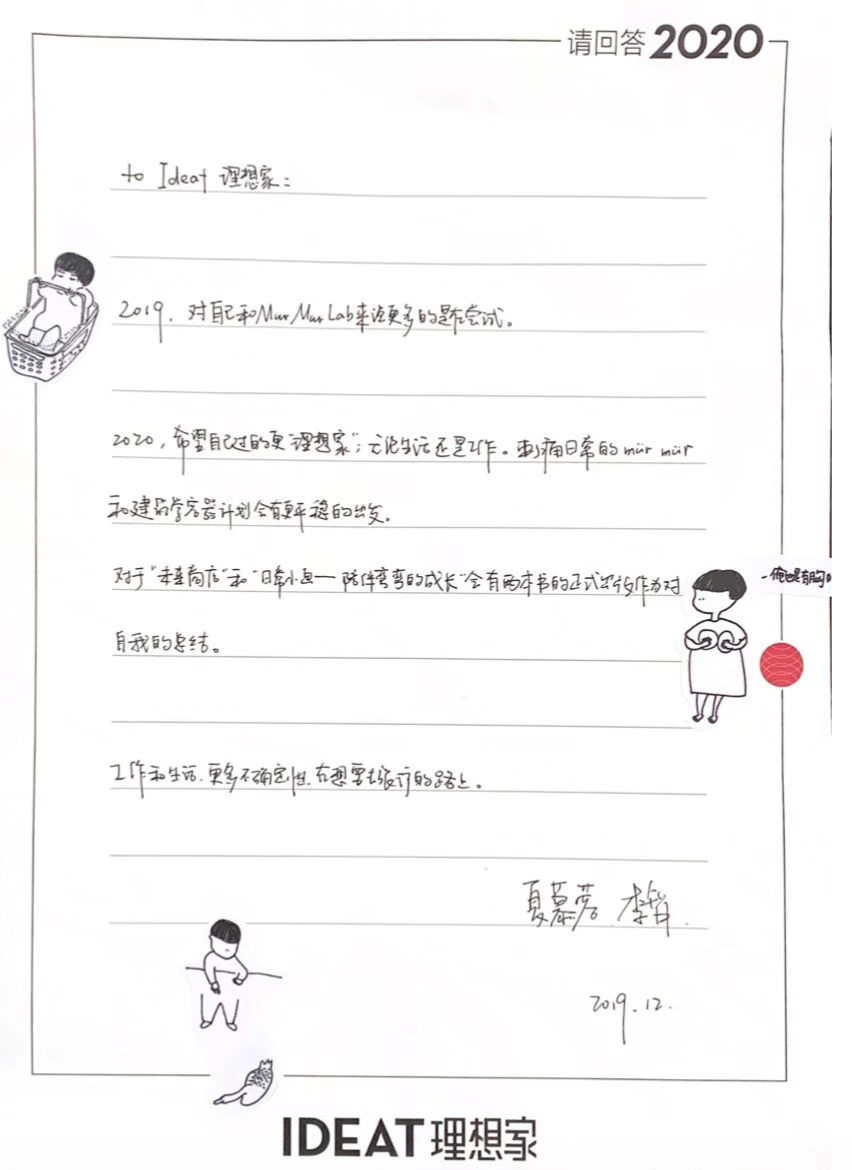 请回答2020
to Ideat 理想家：
2019，对自己和Mur Mur Lab来说更多的是在尝试。
2020，希望自己过的更“理想家”；无论生活还是工作。刺痛日常的mür mür
和建筑学容器计划会有更平稳的出发。
对于“未来商店”和“日常小鱼—陪伴弯弯的成长”会有两本书的正式出版作为对
自我的总结。
工作和生活，更多不确定性，在想要去旅行的路上。
夏慕蓉 李智
2019.12.
IDEAT理想家